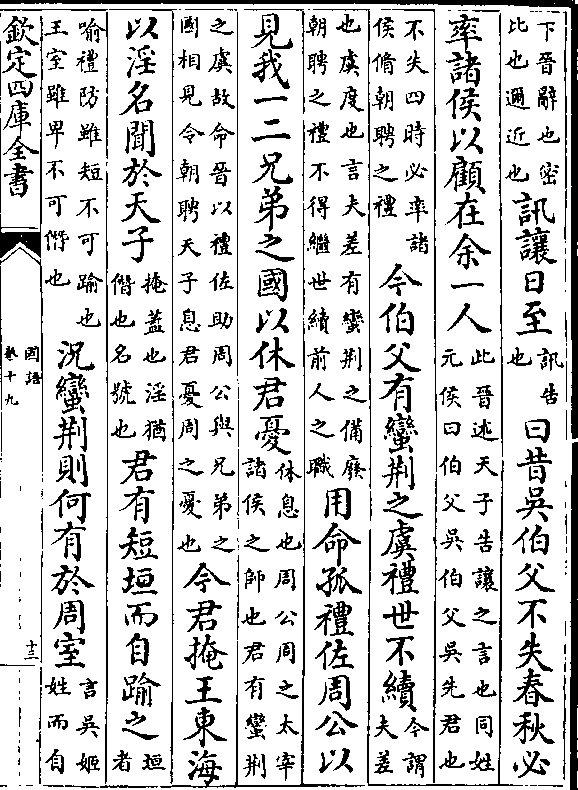 下晉辭也密
比也邇近也
訊讓日至
訊告
也
曰昔吳伯父不失春秋必
率諸侯以顧在余一人
此晉述天子告讓之言也同姓
元侯曰伯父吳伯父吳先君也
不失四時必率諸
侯脩朝聘之禮
今伯父有蠻荆之虞禮世不續
今謂
夫差
也虞度也言夫差有蠻荆之備廢
朝聘之禮不得繼世續前人之職
用命孤禮佐周公以
見我一二兄弟之國以休君憂
休息也周公周之太宰
諸侯之師也君有蠻荆
之虞故命晉以禮佐助周公與兄弟之
國相見令朝聘天子息君憂周之憂也
今君掩王東海
以淫名聞於天子
掩蓋也淫猶
僭也名號也
君有短垣而自踰之
垣
者
喻禮防雖短不可踰也
王室雖卑不可僭也
況蠻荆則何有於周室
言吳姬
姓而自
欽定四庫全書
國語
卷十九
十三